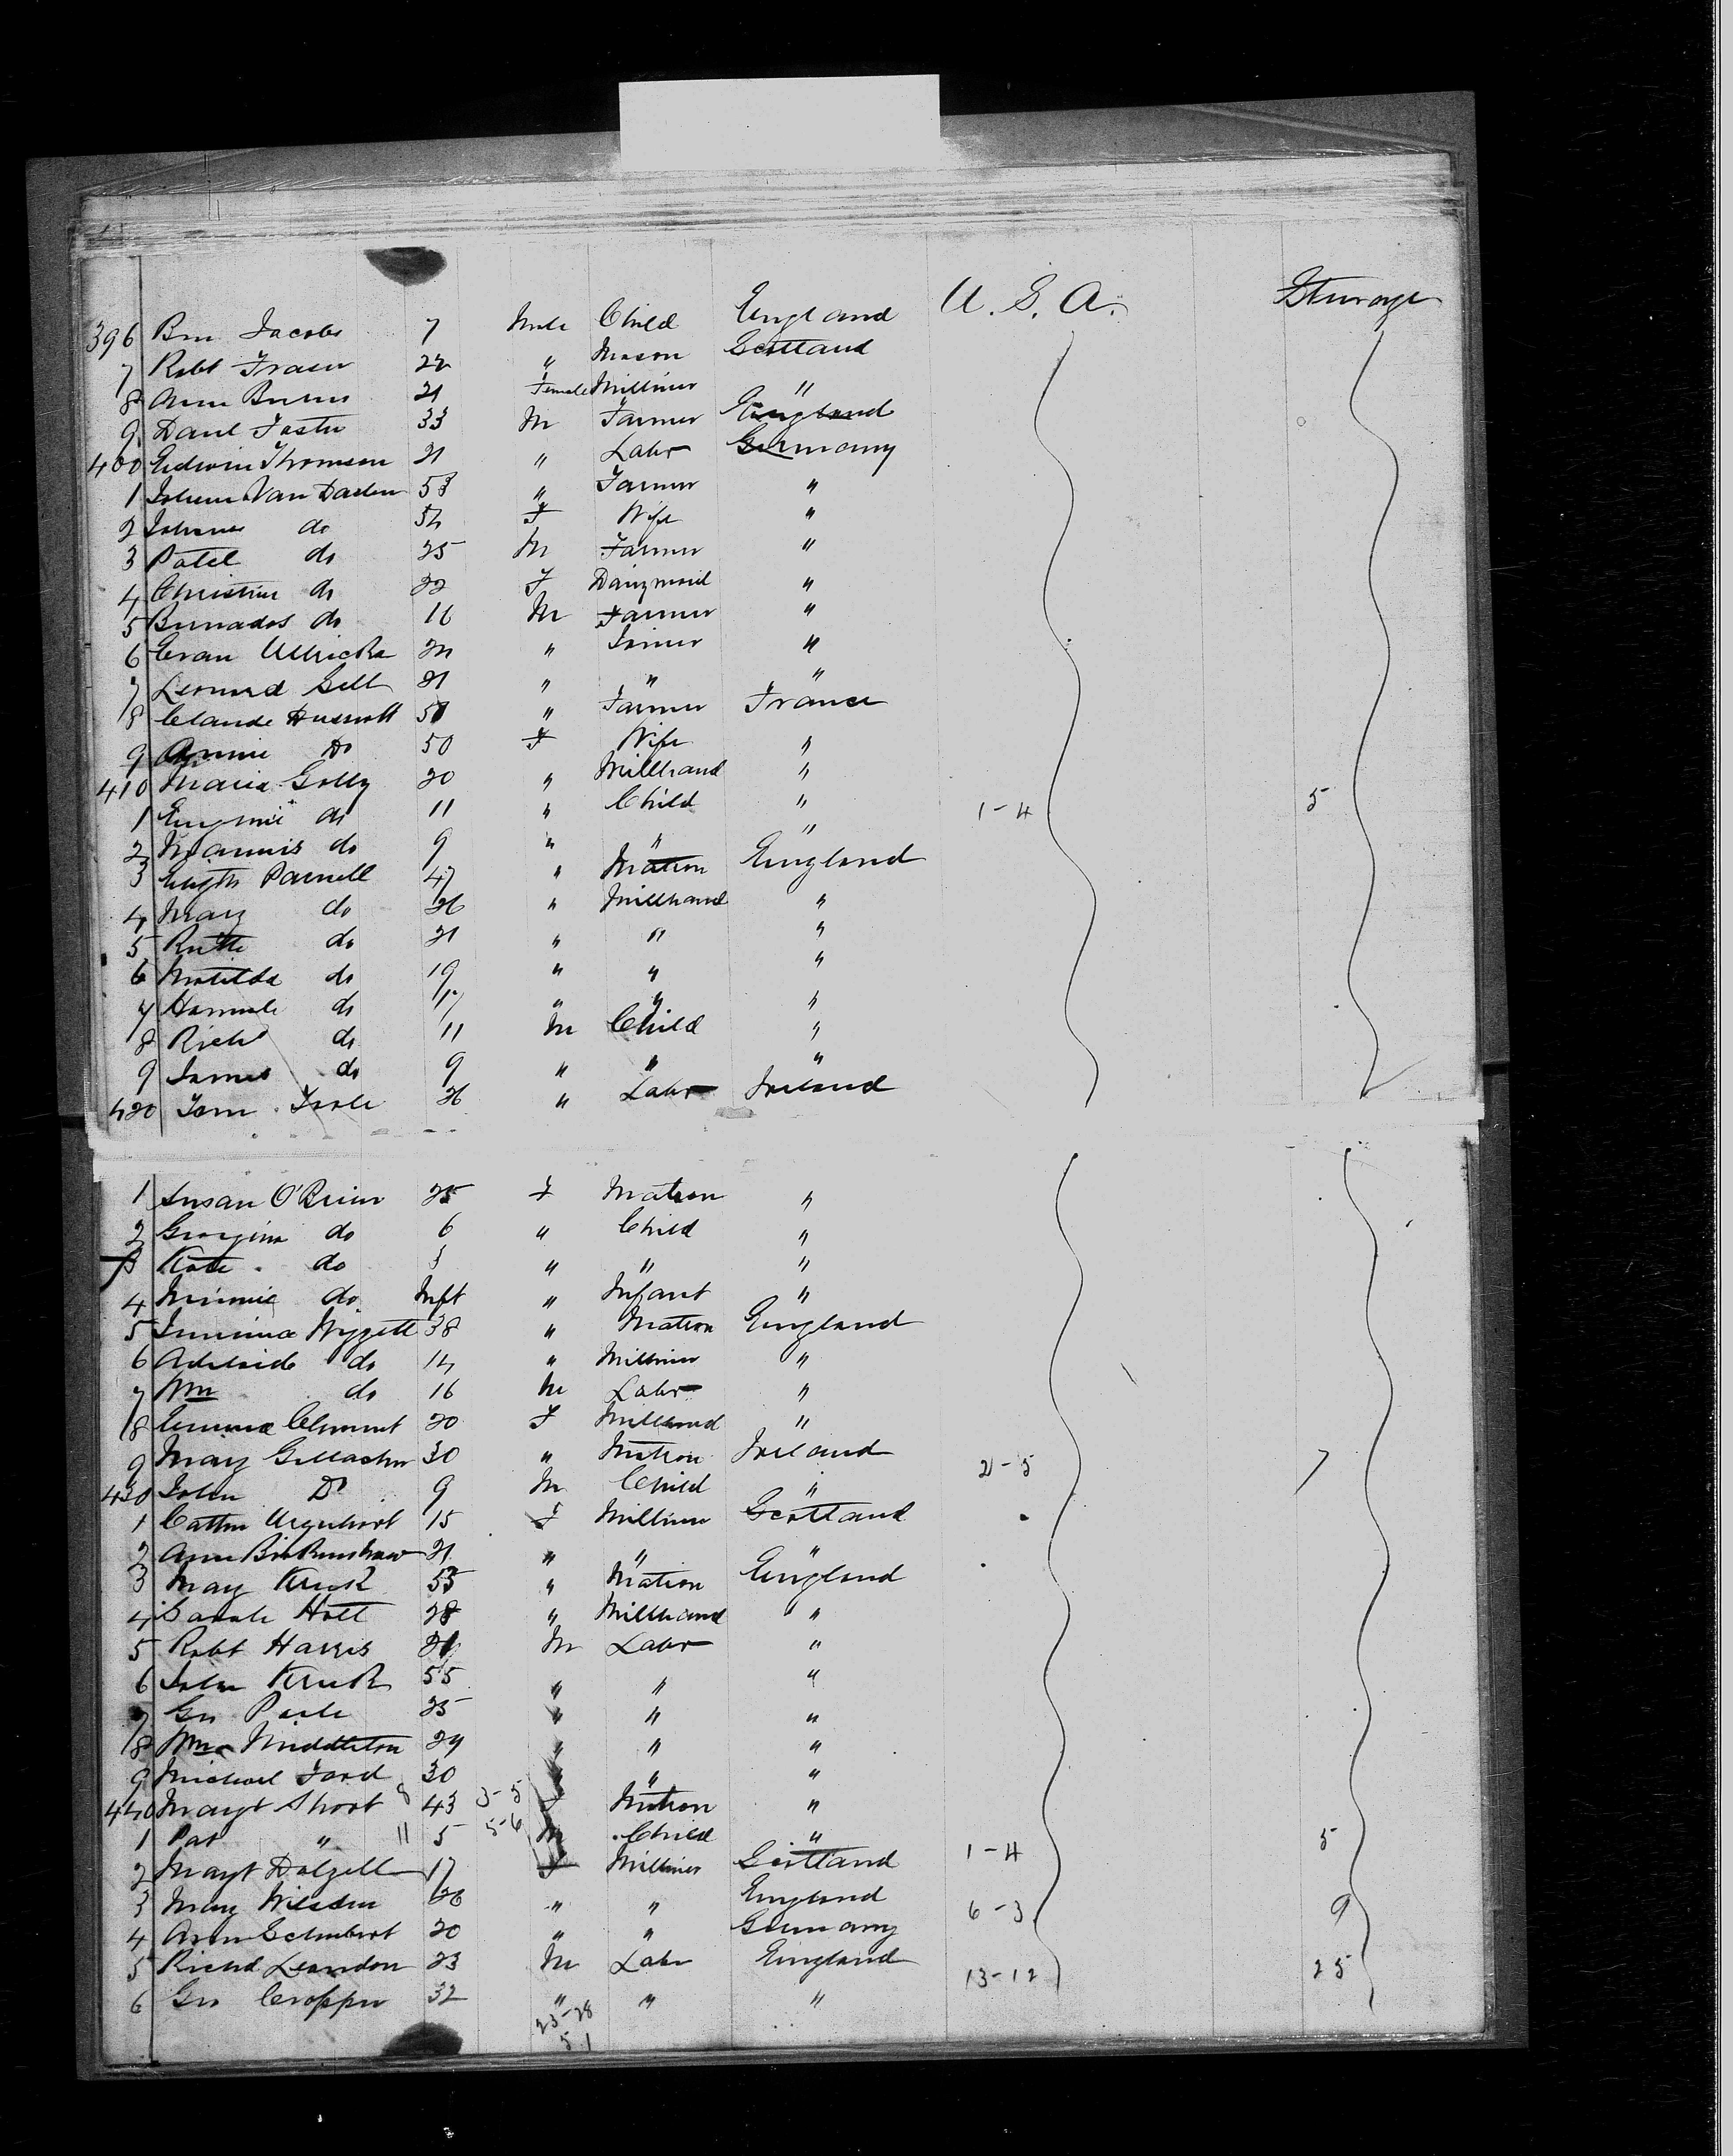 396 Bm Jacobs 7 Male Child England U. S. A. Steerage
7 Robt Fraser 22 " Mason Scotland
8 Ann Burns 21 Female Milliner "
9 Danl Foster 33 M Farmer England
400 Edwin Thomson 21 " Labr Germany
1 Van Daelen 53 " Farmer "
2 do 54 F Wife "
3 Patel do 25 M Farmer "
4 Christine do 22 F Dairymaid "
5 Bernados do 16 M Farmer "
6 Evan Ullricka " Joiner "
7 Leonard Gell 21 " " "
8 Claude 51 " Farmer France
9 Annie Do 50 F Wife "
410 Maria Golly 20 " Millhand "
1 Eugenie do 11 " Child " 1-4 5
2 do 9 " " "
3 Parnell 47 " Matron England
4 Mary do 26 " Millhand "
5 Ruth do 21 " " "
6 Matilda do 19 " " "
7 Hannah do 17 " " "
8 Richd do 11 M Child "
9 James do 9 " " "
420 Tom 26 " Labr Ireland
1 Susan O'Brien 25 F Matron "
2 Georgina do 6 " Child "
3 Kate do 3 " " "
4 Minnie do Inft " Infant "
5 Jemima Wiggett 38 " Matron England
6 Adelaide do 14 " Milliner "
7 Wm do 16 M Labr "
8 Emma Clement 20 F Millhand "
9 Mary 30 " Matron Ireland 2-5 7
430 John Do 9 M Child "
1 Cathn Urquhart 15 F Milliner Scotland
2 Ann Birkenshaw 21 " " "
3 Mary Krusk 55 " Matron England
4 Sarah Holt 28 " Millhand "
5 Robt Harris 21 M Labr "
6 John Krusk 55 " " "
7 Geo 25 " " "
8 Wm Middleton 29 " " "
9 Michael Ford 30 " " "
440 Margt Short 8 43 3-5 F Matron "
1 Pat " 11 5 5-6 M Child " 5
2 Margt Dalzell 17 F Milliner Scotland 1-4
3 Mary 26 " " England 6-3 9
4 Ann Schubert 20 " " Germany
5 Richd Leandon 23 M Labr England 13-12 25
6 Geo Cropper 32 " " "
23-28
51